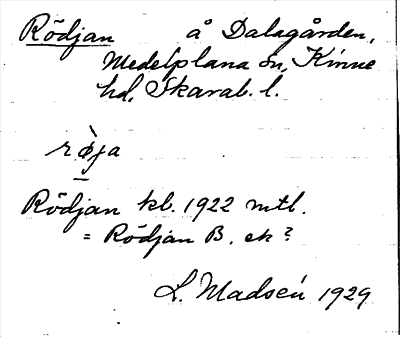 Rödjan å Dalagården,
Medelplana sn, Kinne
hd, Skarab. l.
rø̀ja
Rödjan kl. 1922 mtl.
= Rödjan B. ek?
L. Madsén 1929